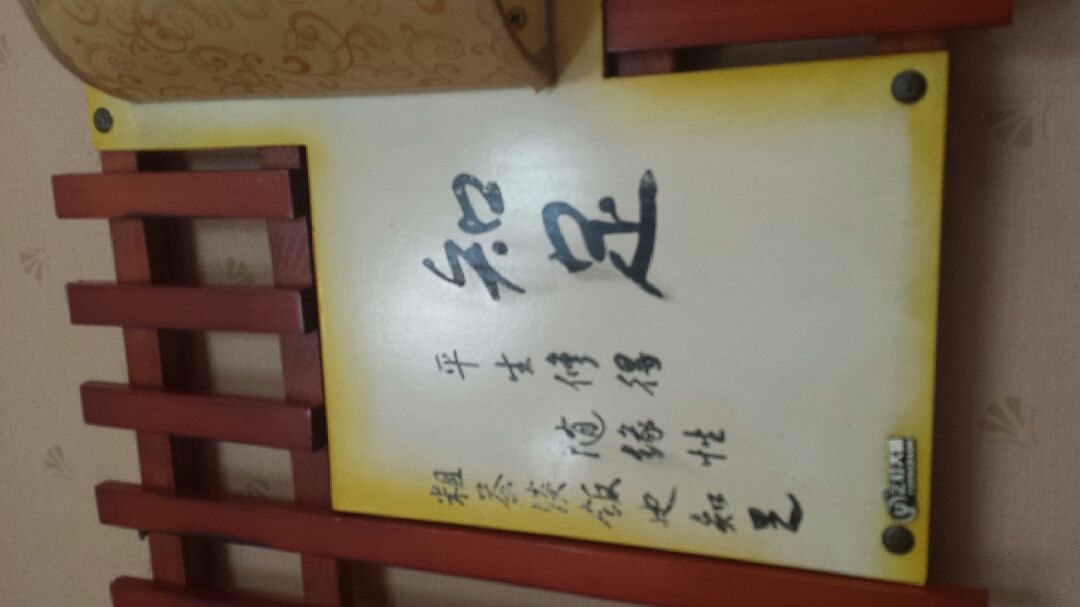 知足
平生修得
随缘性
粗茶淡饭也知足